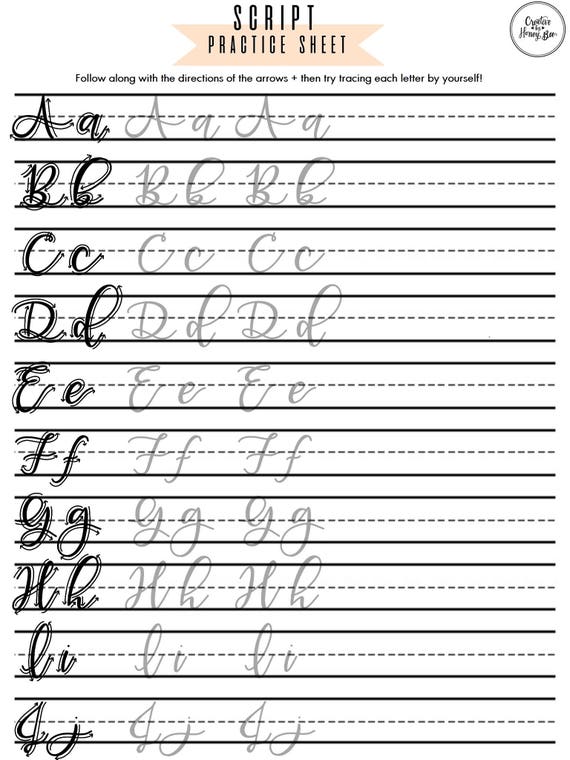 SCRIPT
PRACTICE SHEET
Creative
by
Honey Bee
Follow along with the directions of the arrows + then try tracing each letter by yourself!
A a A a A a
B b B b B b
C c C c C c
D d D d D d
E e E e E e
F f F f F f
G g G g G g
H h H h H h
I i I i I i
J j J j J j